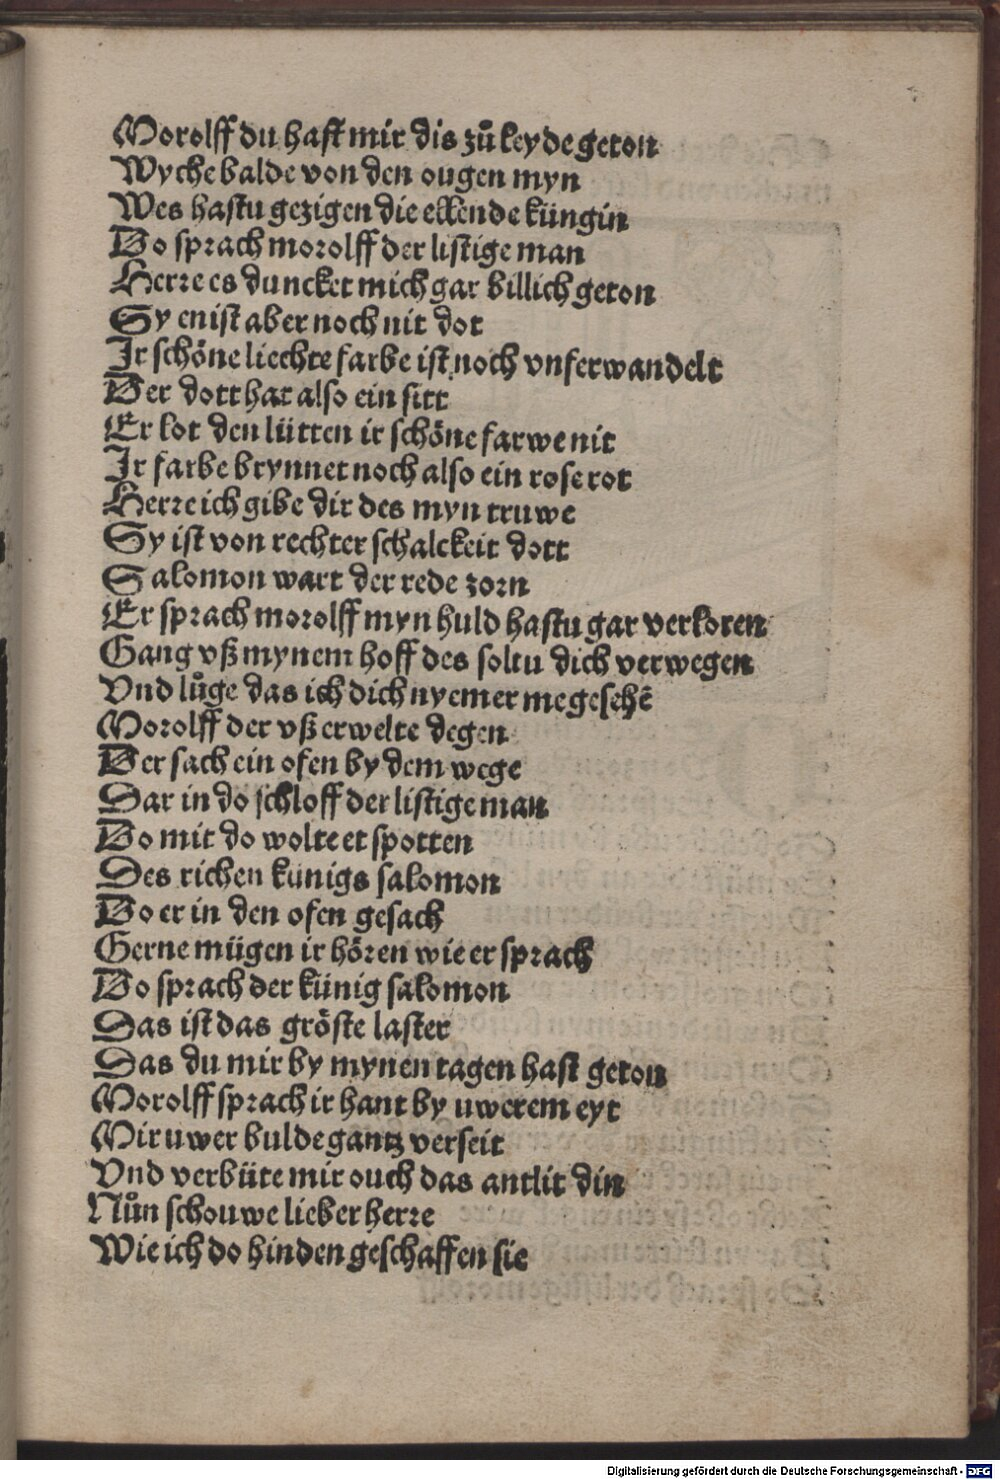 Morolff du hast mir dis zů leyde geton
Wyche balde von den ougen myn
Wes hastu gezigen die ellende küngin
Do sprach morolff der listige man
Herre es duncket mich gar billich geton
Sy en ist aber noch nit dot
Ir schöne liechte farbe ist noch vnferwandelt
Der dott hat also ein sitt
Er lot den lütten ir schöne farwe nit
Ir farbe brynnet noch also ein rose rot
Herre ich gibe dir des myn truwe
Sy ist von rechter schalckeit dott
Salomon wart der rede zorn
Er sprach morolff myn huld hastu gar verloren
Gang vß mynem hoff des soltu dich verwegen
Vnd lůge das ich dich nyemer me gesehē
Morolff der vß erwelte degen
Der sach ein ofen by dem wege
Dar in do schloff der listige man
Do mit do wolte et spotten
Des richen kunigs salomon
Do er in den ofen gesach
Gerne mügen ir hören wie er sprach
Do sprach der künig salomon
Das ist das gröste laster
Das du mir by mynen tagen hast geton
Morolff sprach ir hant by uwerem eyt
Mir uwer hulde gantz verseit
Vnd verbüte mir ouch das antlit din
Nůn schouwe lieber herre
Wie ich do hinden geschaffen sie
Digitalisierung gefördert durch die Deutsche Forschungsgemeinschaft - DFG